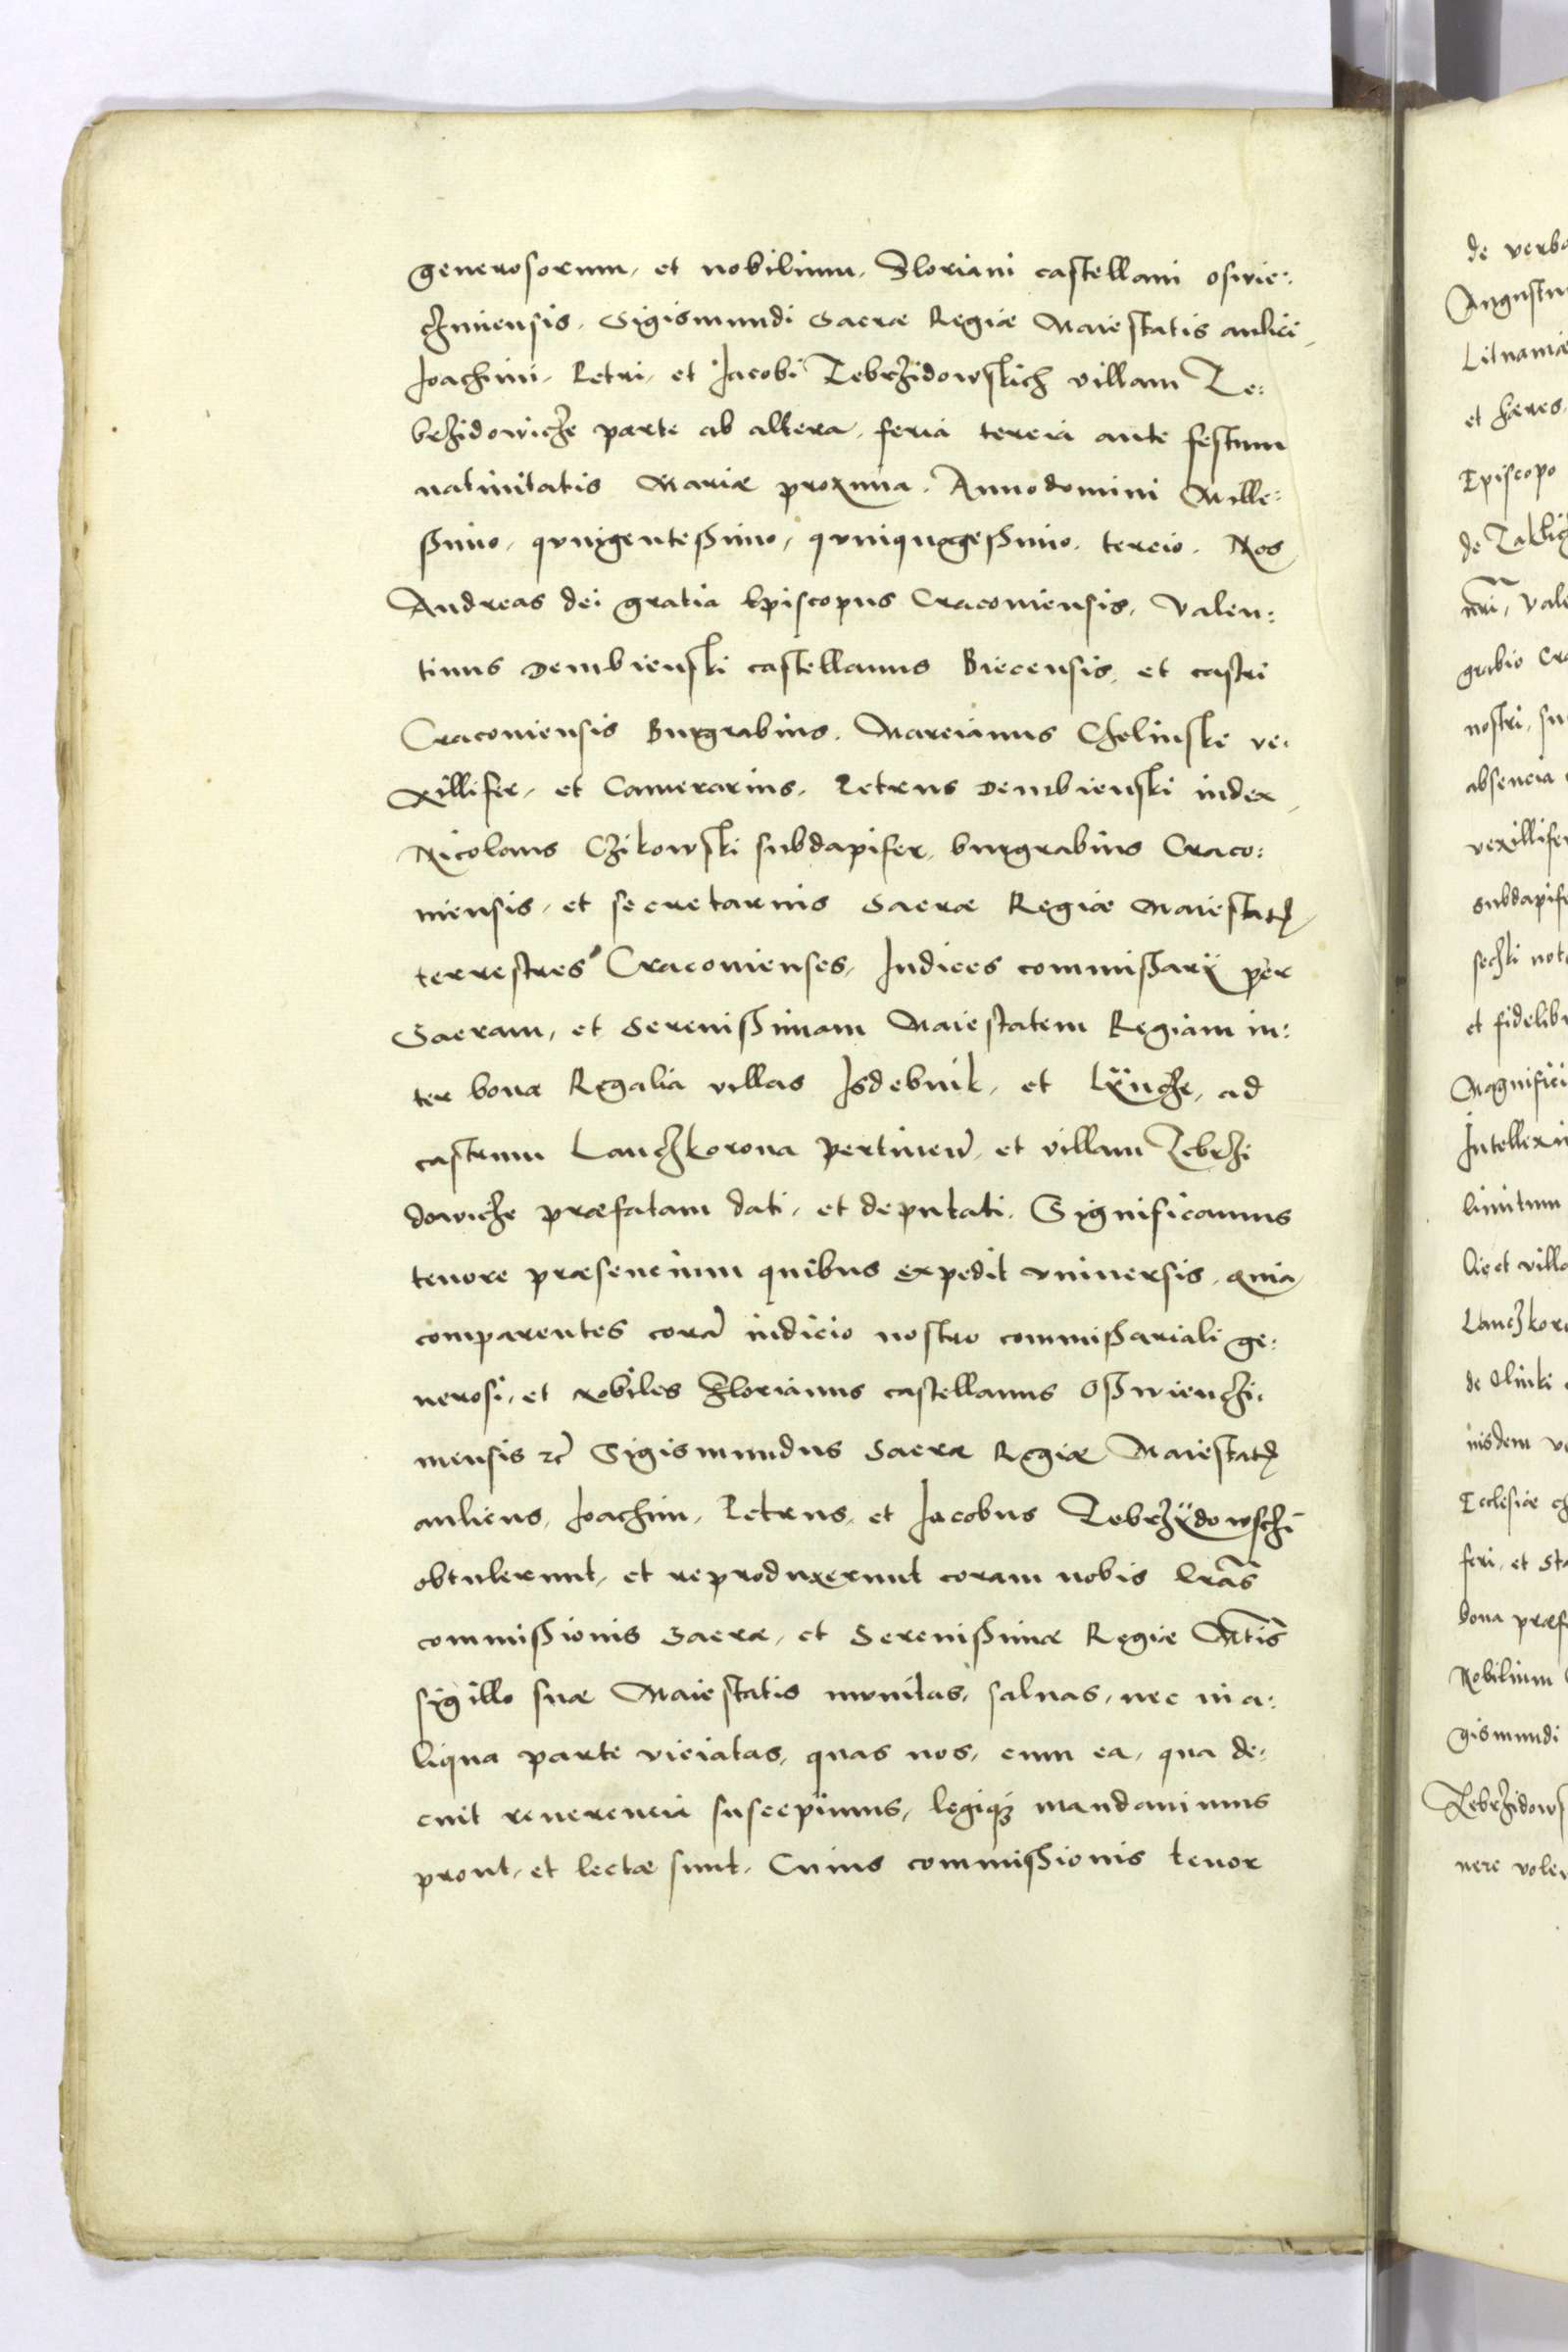 generosorum, et nobilium, Floriani castellani oswie:
czimiensis, Sigismundi Sacræ Regiæ Maiestatis aulici,
Joachimi, Petri, et Jacobi Zebrzidowskich villam Ze:
brzidowicze parte ab altera, feria tercia ante festum
nativitatis Mariæ proxima. Anno domini Mille:
ssimo, quingentessimo, quinquagessimo, tercio. Nos
Andreas dei gratia Episcopus Cracoviensis, Valen:
tinus Dembienski castellanus Biecensis, et castri
Cracoviensis Burgrabius. Marcianus Chelinski ve:
xillifer, et Camerarius, Petrus Dembienski iudex,
Nicolaus Czikowski subdapifer, burgrabius Craco:
viensis, et secretarius Sacræ Regiæ Maiestatis,
terrestres Cracovienses, Judices commissarij per
Sacram, et Serenissimam Maiestatem Regiam in:
ter bona Regalia villas Isdebnik, et Lÿncze, ad
castrum Lanczkorona pertinen, et villam Zebrzi
dowicze præfatam dati, et deputati. Significamus
tenore præsencium quibus expedit vniuersis, quia
comparentes corã iudicio nostro commissariali ge:
nerosi, et nobiles Florianus castellanus Osswienczi:
mensis etc Sigismundus Sacræ Regiæ Maiestatis
aulicus, Joachim, Petrus, et Jacobus Zebrzÿdowschi
obtulerunt, et reproduxerunt coram nobis lrãs
commissionis Sacræ, et Serenissimæ Regiæ Mtis
sigillo suæ Maiestatis munitas, saluas, nec in a:
liqua parte viciatas, quas nos, cum ea, qua de:
cuit reuerencia suscepimus, legiq3 mandauimus
prout, et lectæ sunt. Cuius commissionis tenor
de verbo
Litvaniæ
et hæres
Episcopo
nri, Vale
nostri, su
absencia
vexillifer
subdapife
et fidelib
Magnifici
Intellexi
limitum
Lanczkoro
Ecclesiæ
feri, et Sta
bona præf
Nobilium
gismundi
Zebrzidows
nere vole